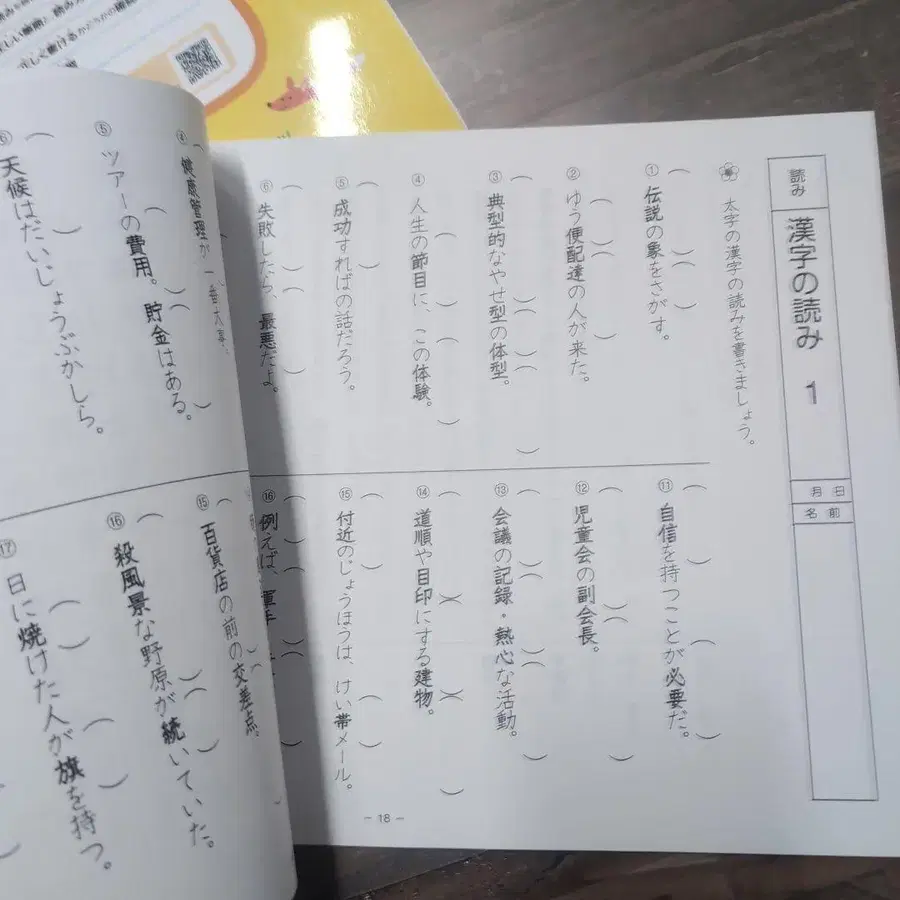 読み
漢字の読み 1
月 日
名前
太字の漢字の読みを書きましょう。
① 伝説の象をさがす。
② ゆう便配達の人が来た。
③ 典型的なやせ型の体型。
④ 人生の節目に、この体験。
⑤ 成功すればの話だろう。
⑥ 失敗したら、最悪だよ。
⑪ 自信を持つことが必要だ。
⑫ 児童会の副会長。
⑬ 会議の記録・熱心な活動。
⑭ 道順や目印にする建物。
⑮ 付近のじょうほうは、けい帯メール。
⑯ 例えば、軍手
- 18 -
④ 健康管理が一番大事
⑤ ツアーの費用。貯金はある。
⑥ 天候はだいじょうぶかしら。
⑮ 百貨店の前の交差点。
⑯ 殺風景な野原が続いていた。
⑰ 日に焼けた人が旗を持つ。